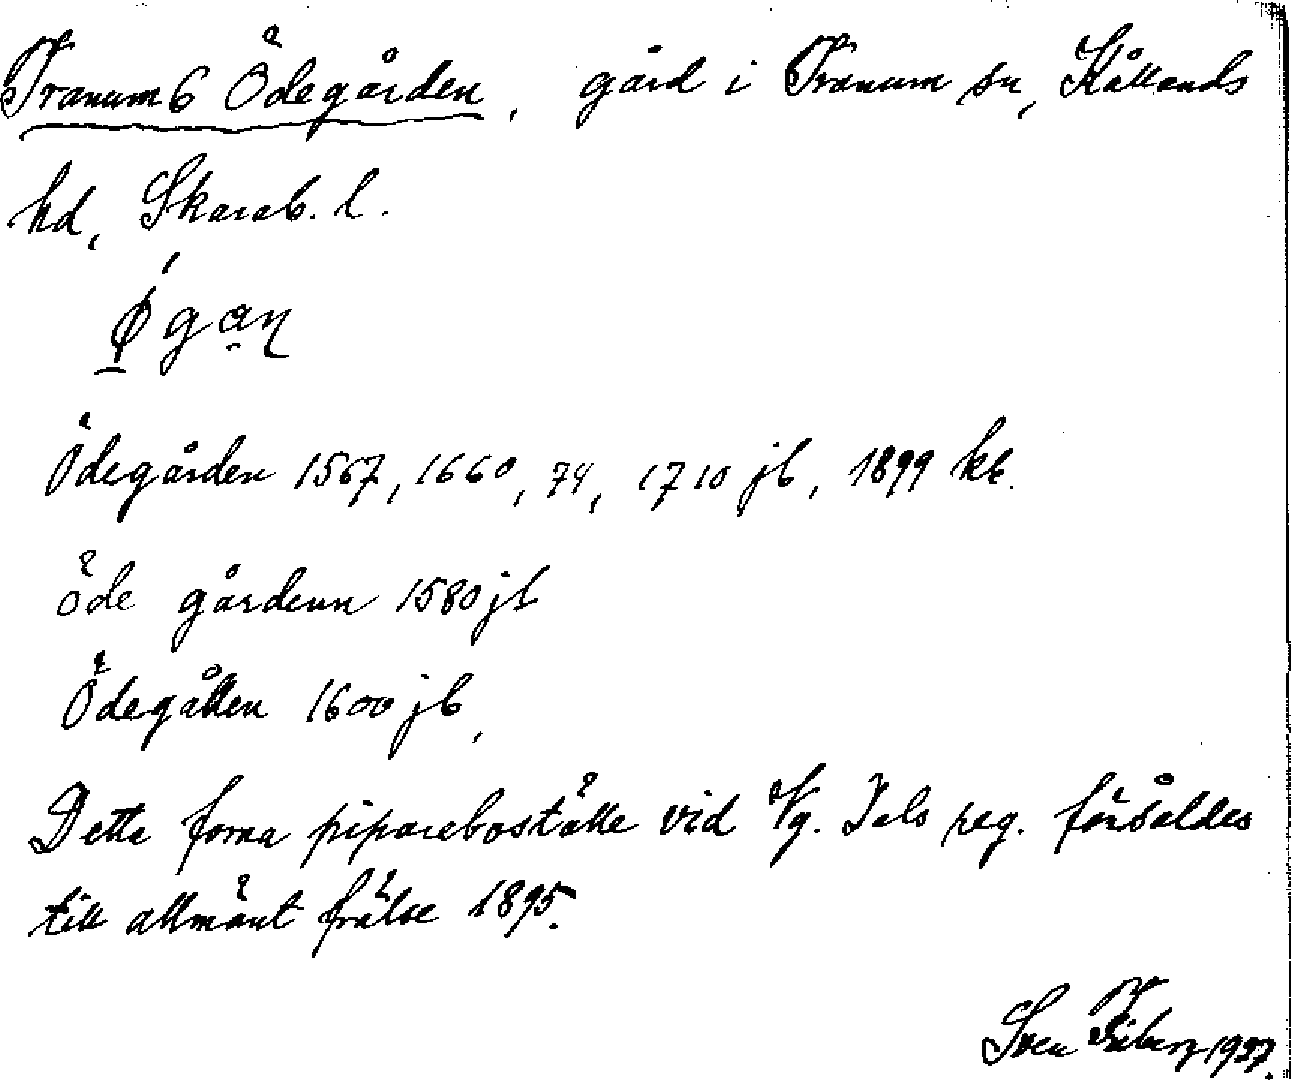 Tranum 6 Ödegården, gård i Tranum sn, Kållands
hd, Skarab. l.
Ödegården 1567, 1660, 74, 1710 jb, 1899 kb.
öde gårdenn 1580 jb
Ödegåtten 1600 jb,
Dette forna pipareboställe vid Vg. Dals reg. försåldes
till allmänt frälse 1895.
Sven Friberg 1937.